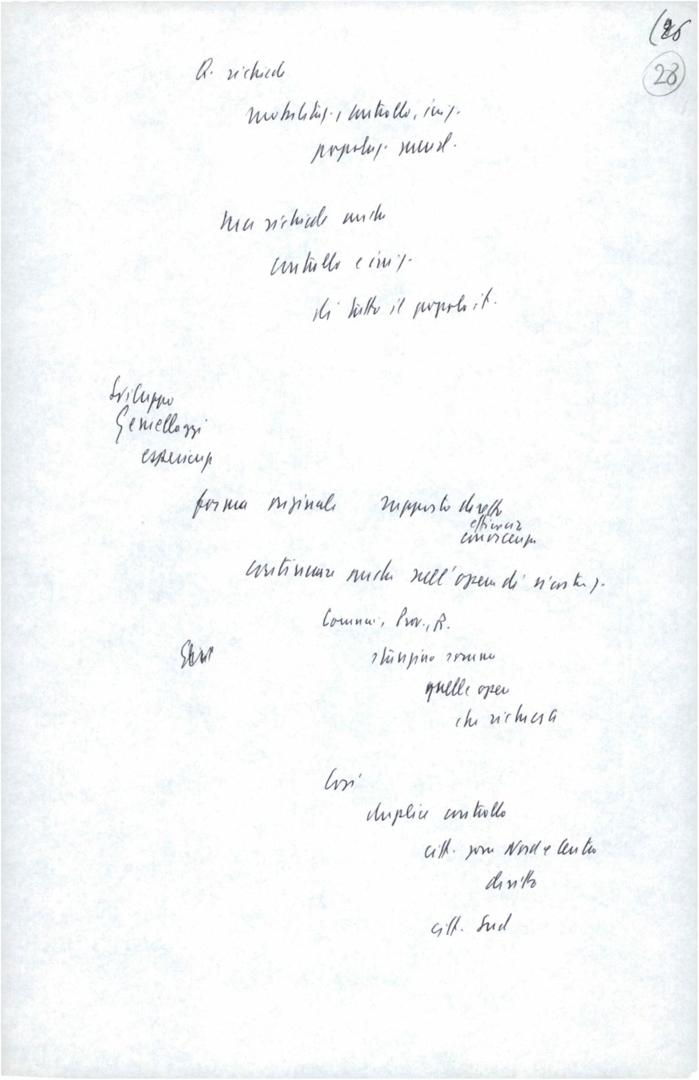 (26
28
R. richiede
mobilitaz., controllo, iniz.
popolaz. merid.
ma richiede anche
controllo e iniz.
di tutto il popolo it.
Sviluppo
Gemellaggi
esperienza
forma originale rapporto diretto
efficienza
conoscenza
continuare anche nell'opera di ricostruz.
Comuni, Prov., R.
quelle opere
che richiesta
Così
duplice controllo
citt. zone Nord e Centro
diretto
citt. Sud